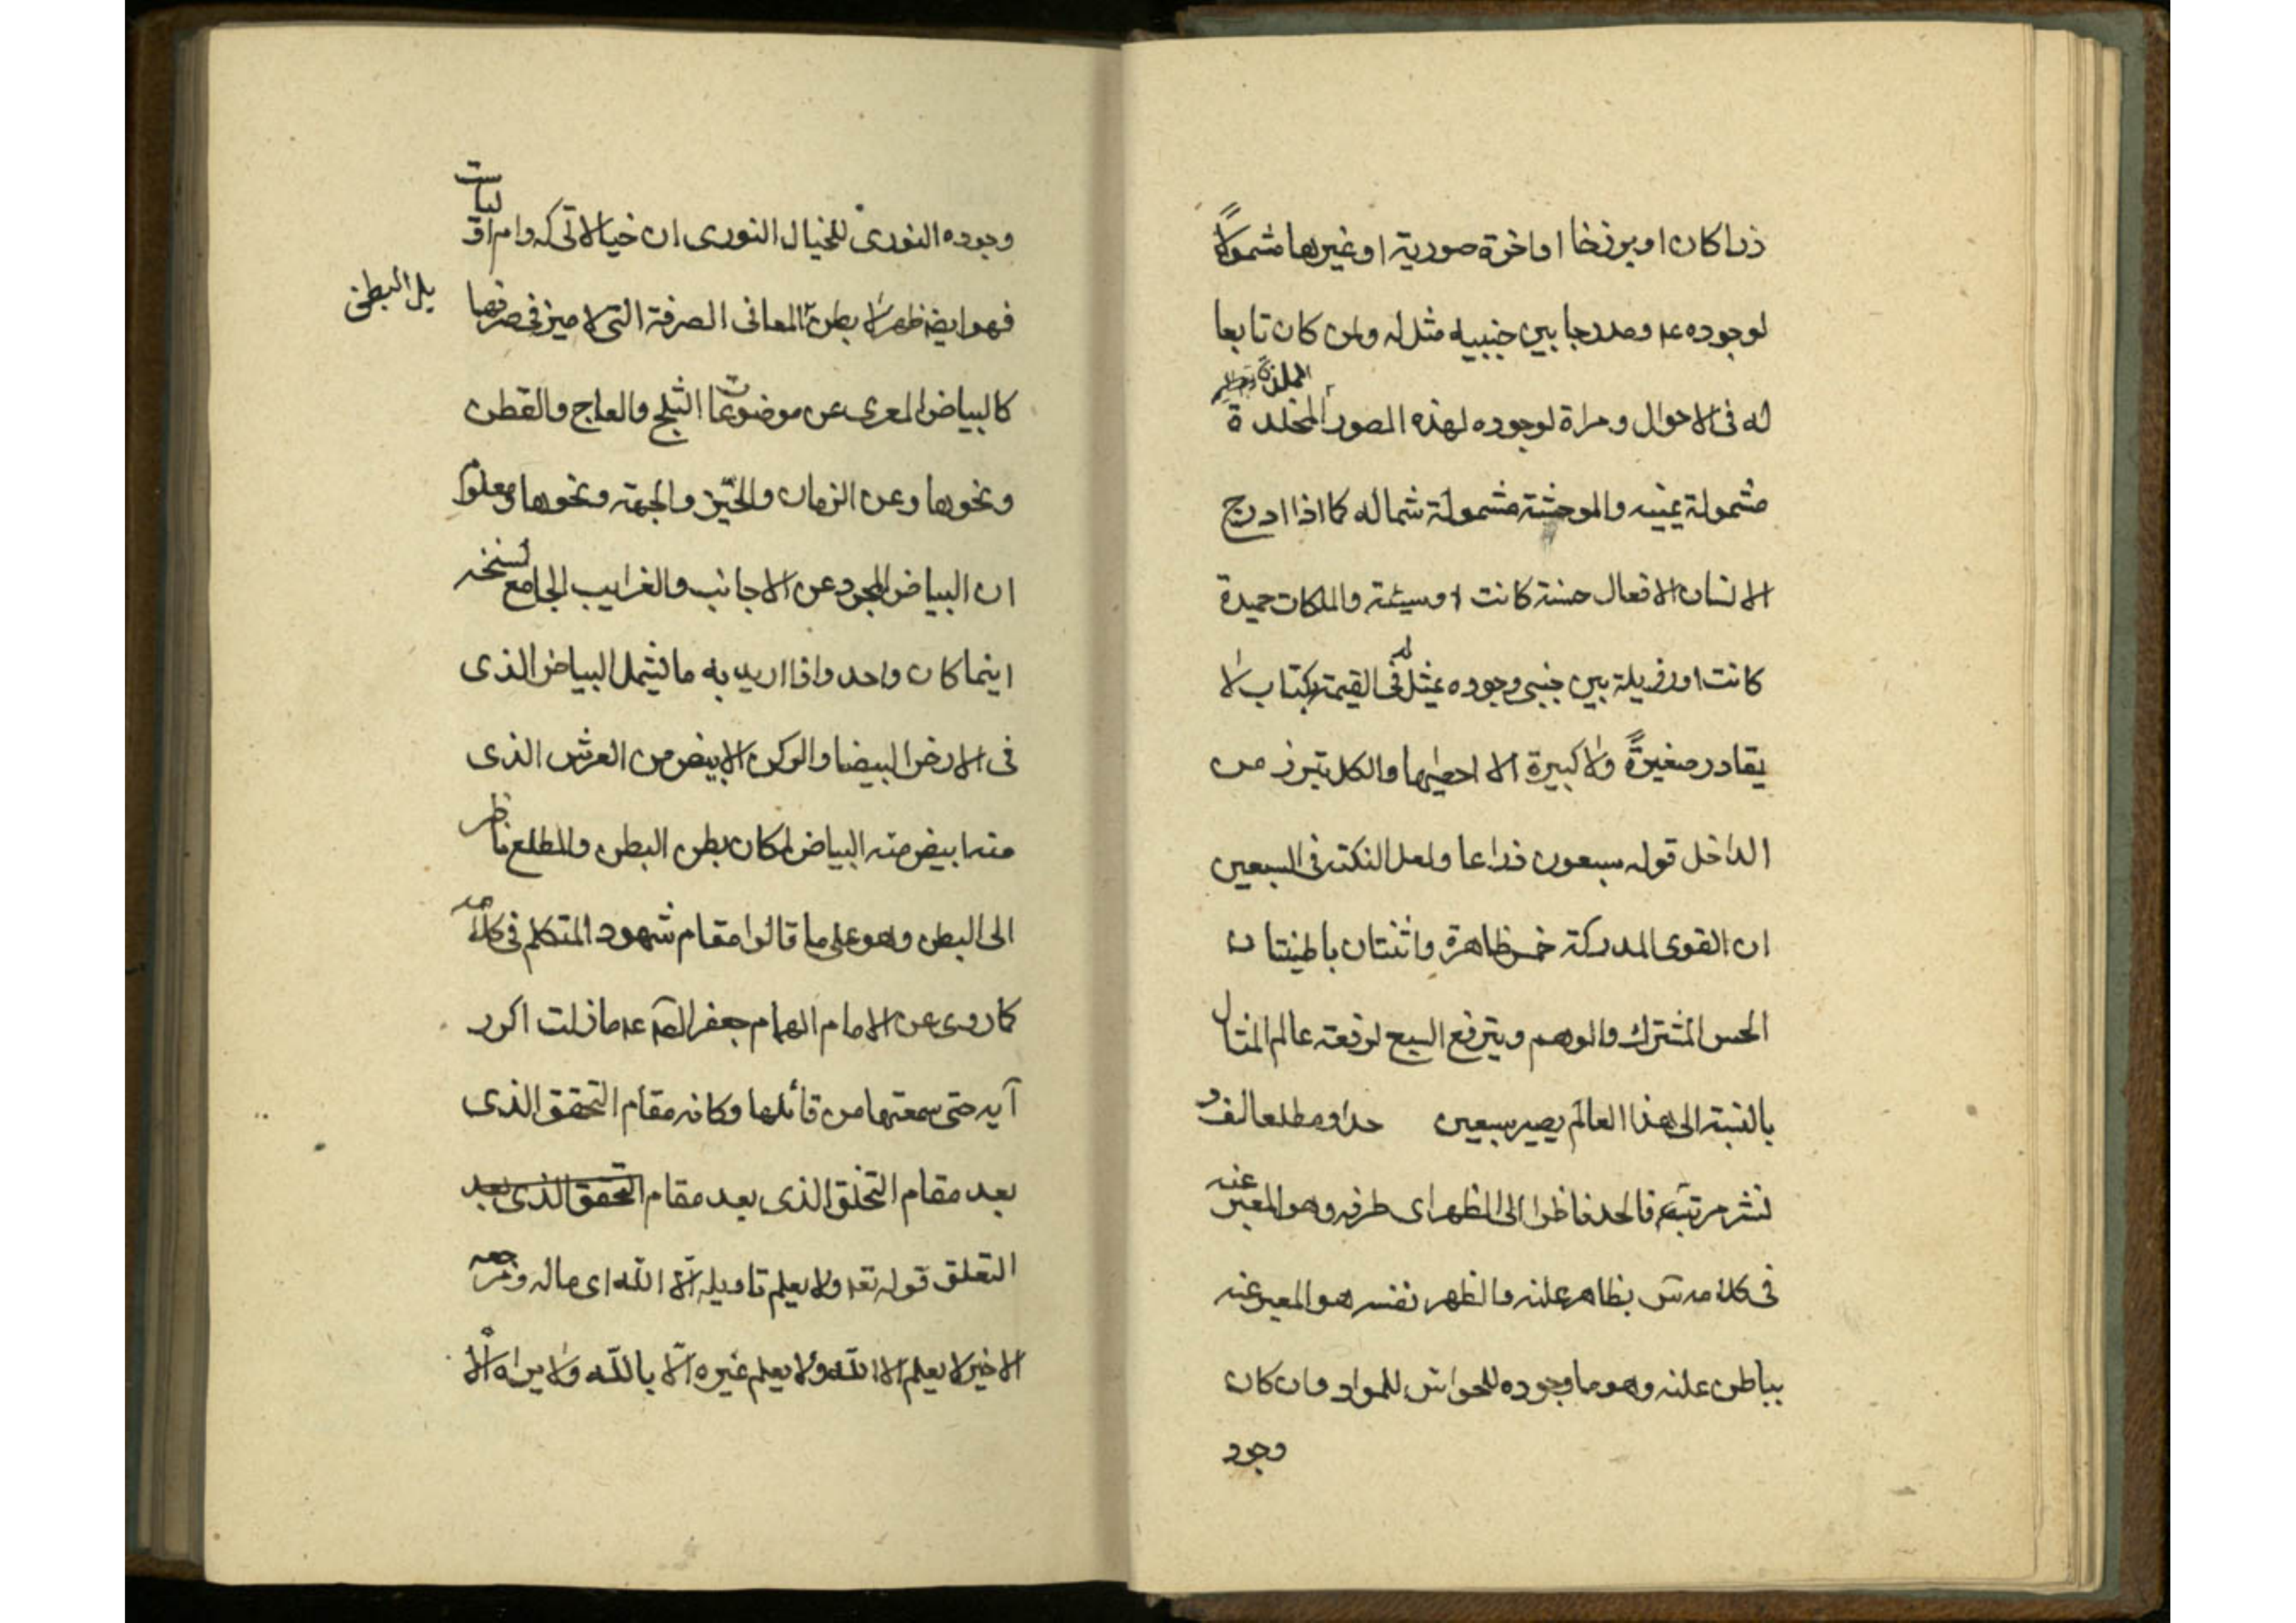 ذرا كان او برزخا او اخرة صورية او غيرها مشمولاً
لوجوده ومندرجا بين جنبيه مثل له وان كان تابعا
له فى الاحوال ومراة لوجوده لهذه الصور المخلدة
مشمولة يمينه والموحشة مشمولة شماله كما اذا ادرج
الانسان الافعال حسنة كانت او سيئة والملكات حميدة
كانت او رذيلة بين جنبى وجوده يمثل له فى القيمة بكتاب لا
يغادر صغيرةً ولا كبيرة الا احصيها والكل تبرز من
الداخل قوله سبعون ذراعا ولعل النكتة فى السبعين
ان القوى المدركة خمس ظاهرة واثنتان باطنيتان
الحس المشترك والوهم ويترفع السبع لرفعة عالم المثال
بالنسبة الى هذا العالم يصير سبعين حدا ومطلعا لف و
نشر مرتب فالحد ناظرا الى الظهر اى طرفه وهو المعبر عنه
فى كلامه بظاهر علنه والظهر نفسه هو المعبر عنه
بباطن علنه وهو ما وجوده للحواس للمواد وان كان
وجود
وجوده النورى للخيال النورى ان خيالاتى كه دام اولياست
فهو ايضا ظهر لا بطن المعانى الصرفة التى لا ميز فى صرفها
بل البطن
كالبياض المعرى عن موضوعات الثلج والعاج والقطن
ونحوها وعن الزمان والحيّز والجهة ونحوها ومعلوم
ان البياض المجرد عن الاجانب والغرايب الجامع لسنخه
اينما كان واحد واذا اريد به ما يشمل البياض الذى
فى الارض البيضا والركن الابيض من العرش الذى
منه ابيض منه البياض لكان بطن البطن والمطلع ناظر
الى البطن وهو على ما قالوا مقام شهود المتكلم فى كلامه
كما روى عن الامام الهمام جعفر ما زلت اكرر
آية حتى سمعتها من قائلها وكانه مقام التحقق الذى
بعد مقام التخلق الذى بعد مقام التحقق الذى بعد
التعلق قوله تعه ولا يعلم تاويله الّا اللّه اى ماله ومرجعه
الاخير لا يعلم الا اللّه ولا يعلم غيره الّا باللّه ولا يراه الّا